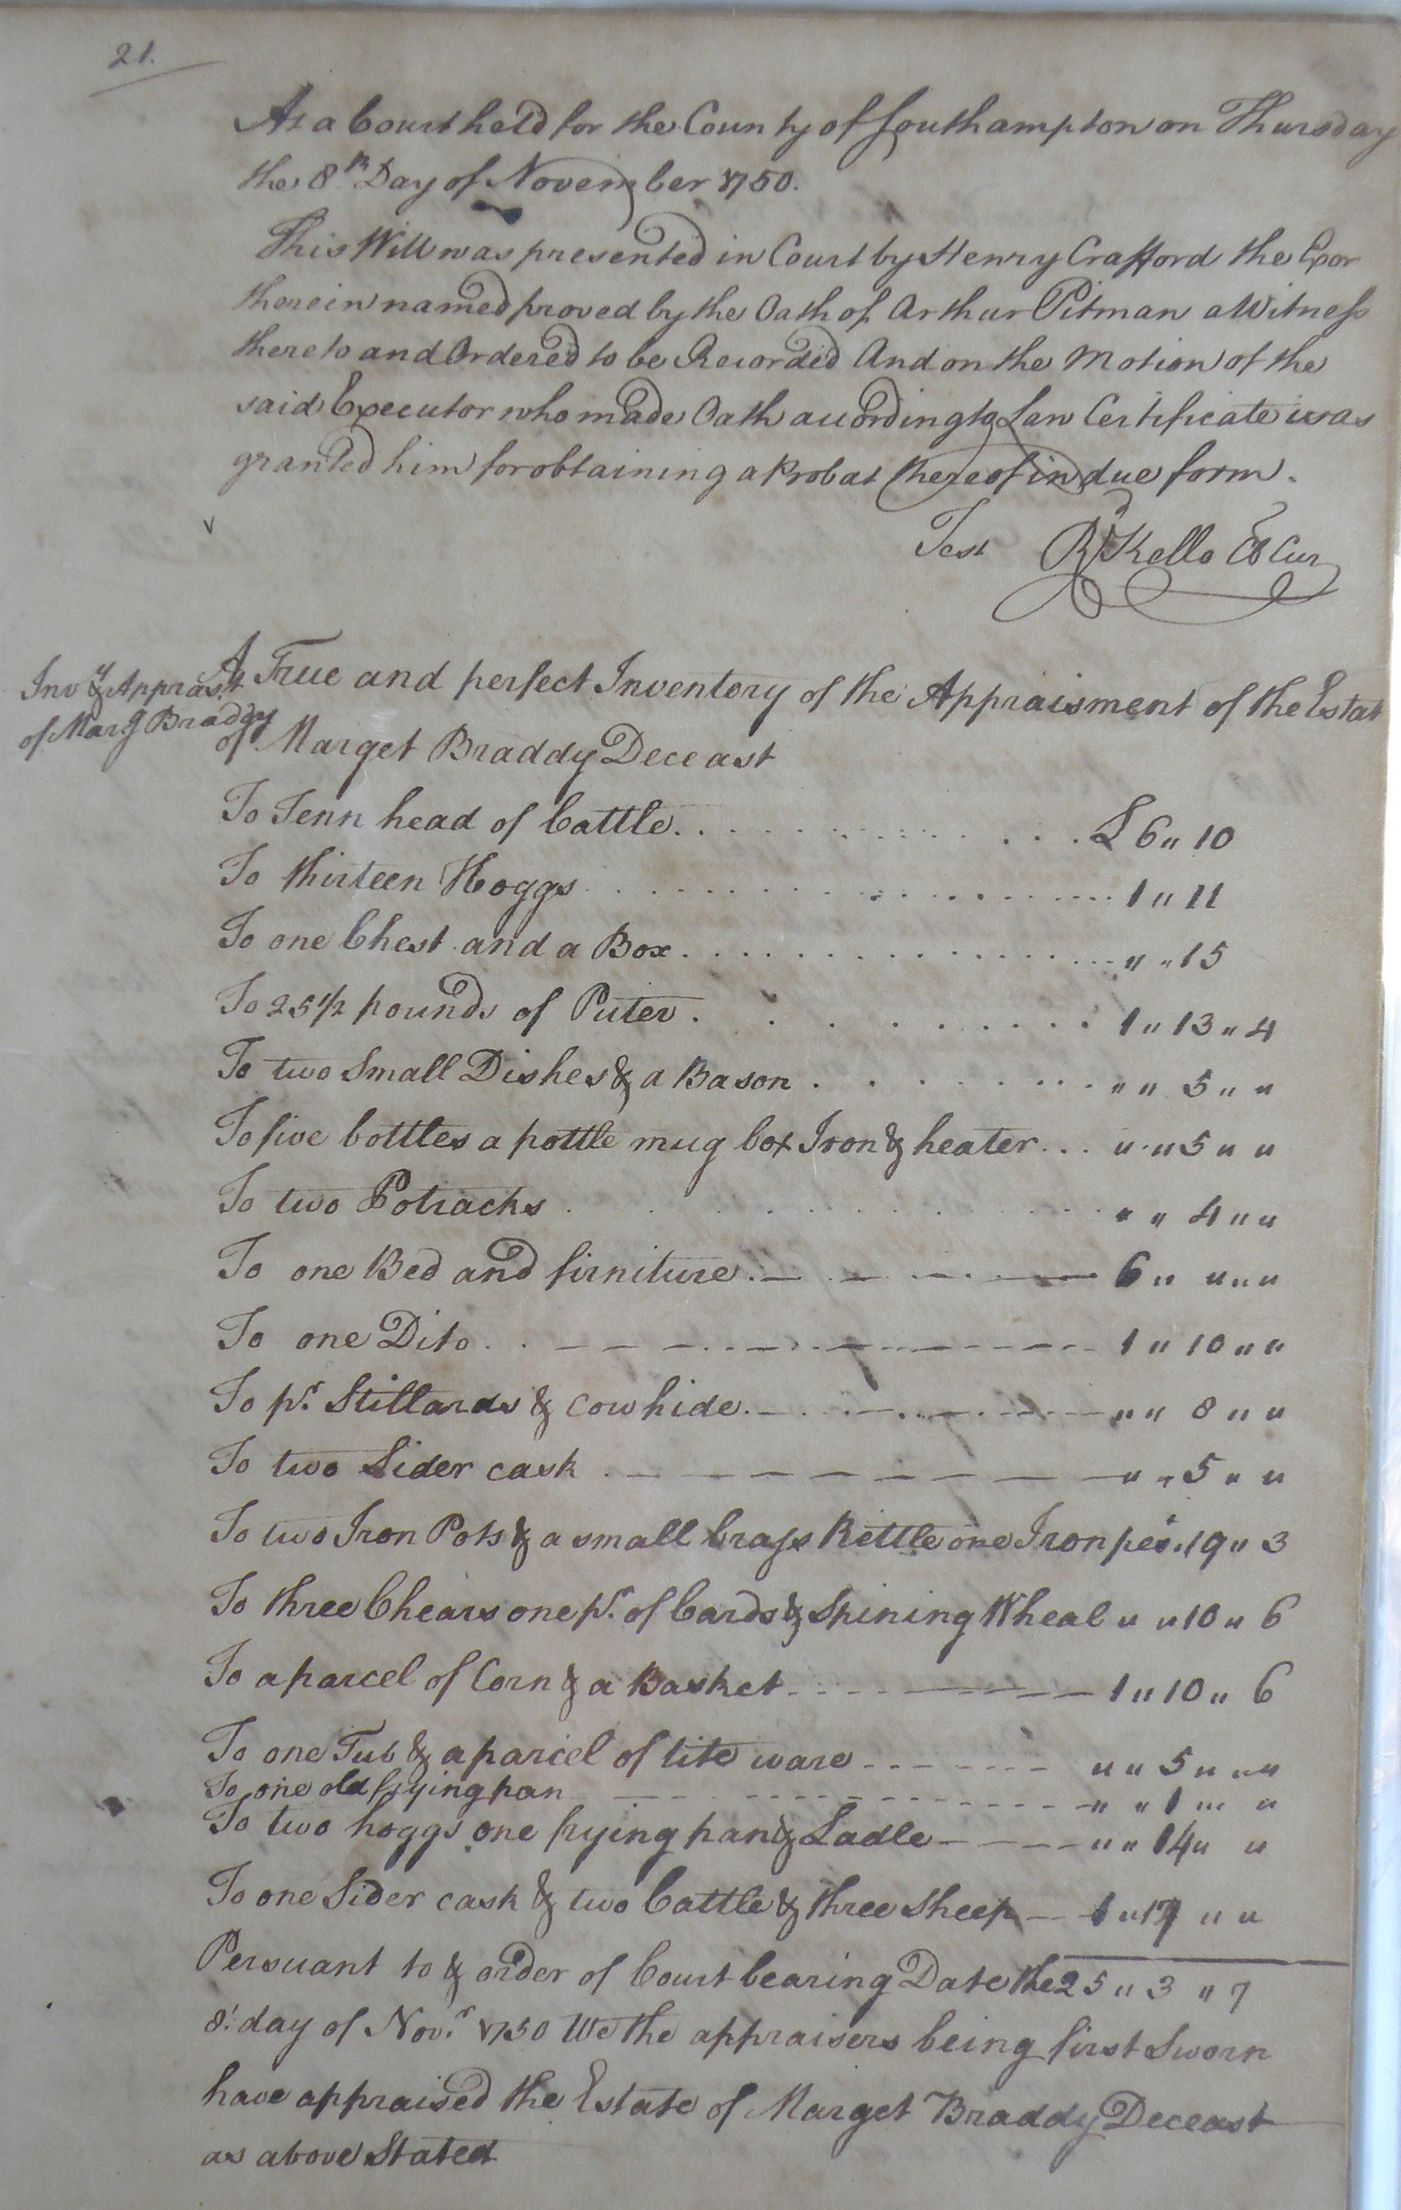 21.
At a Court held for the County of Southampton on Thursday
the 8th Day of November 1750.
This Will was presented in Court by Henry Crafford the Exor
therein named proved by the Oath of Arthur Pitman a Witness
thereto and Ordered to be Recorded And on the Motion of the
said Executor who made Oath according to Law Certificate was
granted him for obtaining a Probat thereof in due form.
Test Rd Kello Cl Cur
Invy & Apprast
of Marg Braddy
A True and perfect Inventory of the Appraisment of the Estat
of Marget Braddy Deceast
To Tenn head of Cattle . . . . . . . . . . . . £ 6 " 10
To thirteen Hoggs . . . . . . . . . . . . 1 " 11
To one Chest and a Box . . . . . . . . . . . . " " 15
To 25 1/2 pounds of Puter . . . . . . . . . . 1 " 13 " 4
To two Small Dishes & a Bason . . . . . . . . . " " 5 " "
To five bottles a pottle mug box Iron & heater . . . " " 5 " "
To two Potracks . . . . . . . . . . " " 4 " "
To one Bed and firniture . — . — . — 6 " " " "
To one Dito . . — — — — — — 1 " 10 " "
To pr. Stillards & Cow hide . — . — . — " " 8 " "
To two Sider cask . — — — — — — " " 5 " "
To two Iron Pots & a small brass Kettle one Iron pes " 19 " 3
To three Chears one pr. of Cards & Spining Wheal " " 10 " 6
To a parcel of Corn & a Basket - - - — — 1 " 10 " 6
To one Tub & a parcel of tite ware - - - - - - " " 5 " " "
To one old frying pan - - - - - - - - " " 1 " "
To two hoggs one frying pan & Ladle — — — — " " 14 " "
To one Sider cask & two Cattle & three Sheep — 1 " 17 " "
Persuant to & order of Court bearing Date the 25 " 3 " 7
8' day of Novr. 1750 We the appraisers being first Sworn
have appraised the Estate of Marget Braddy Deceast
as above Stated